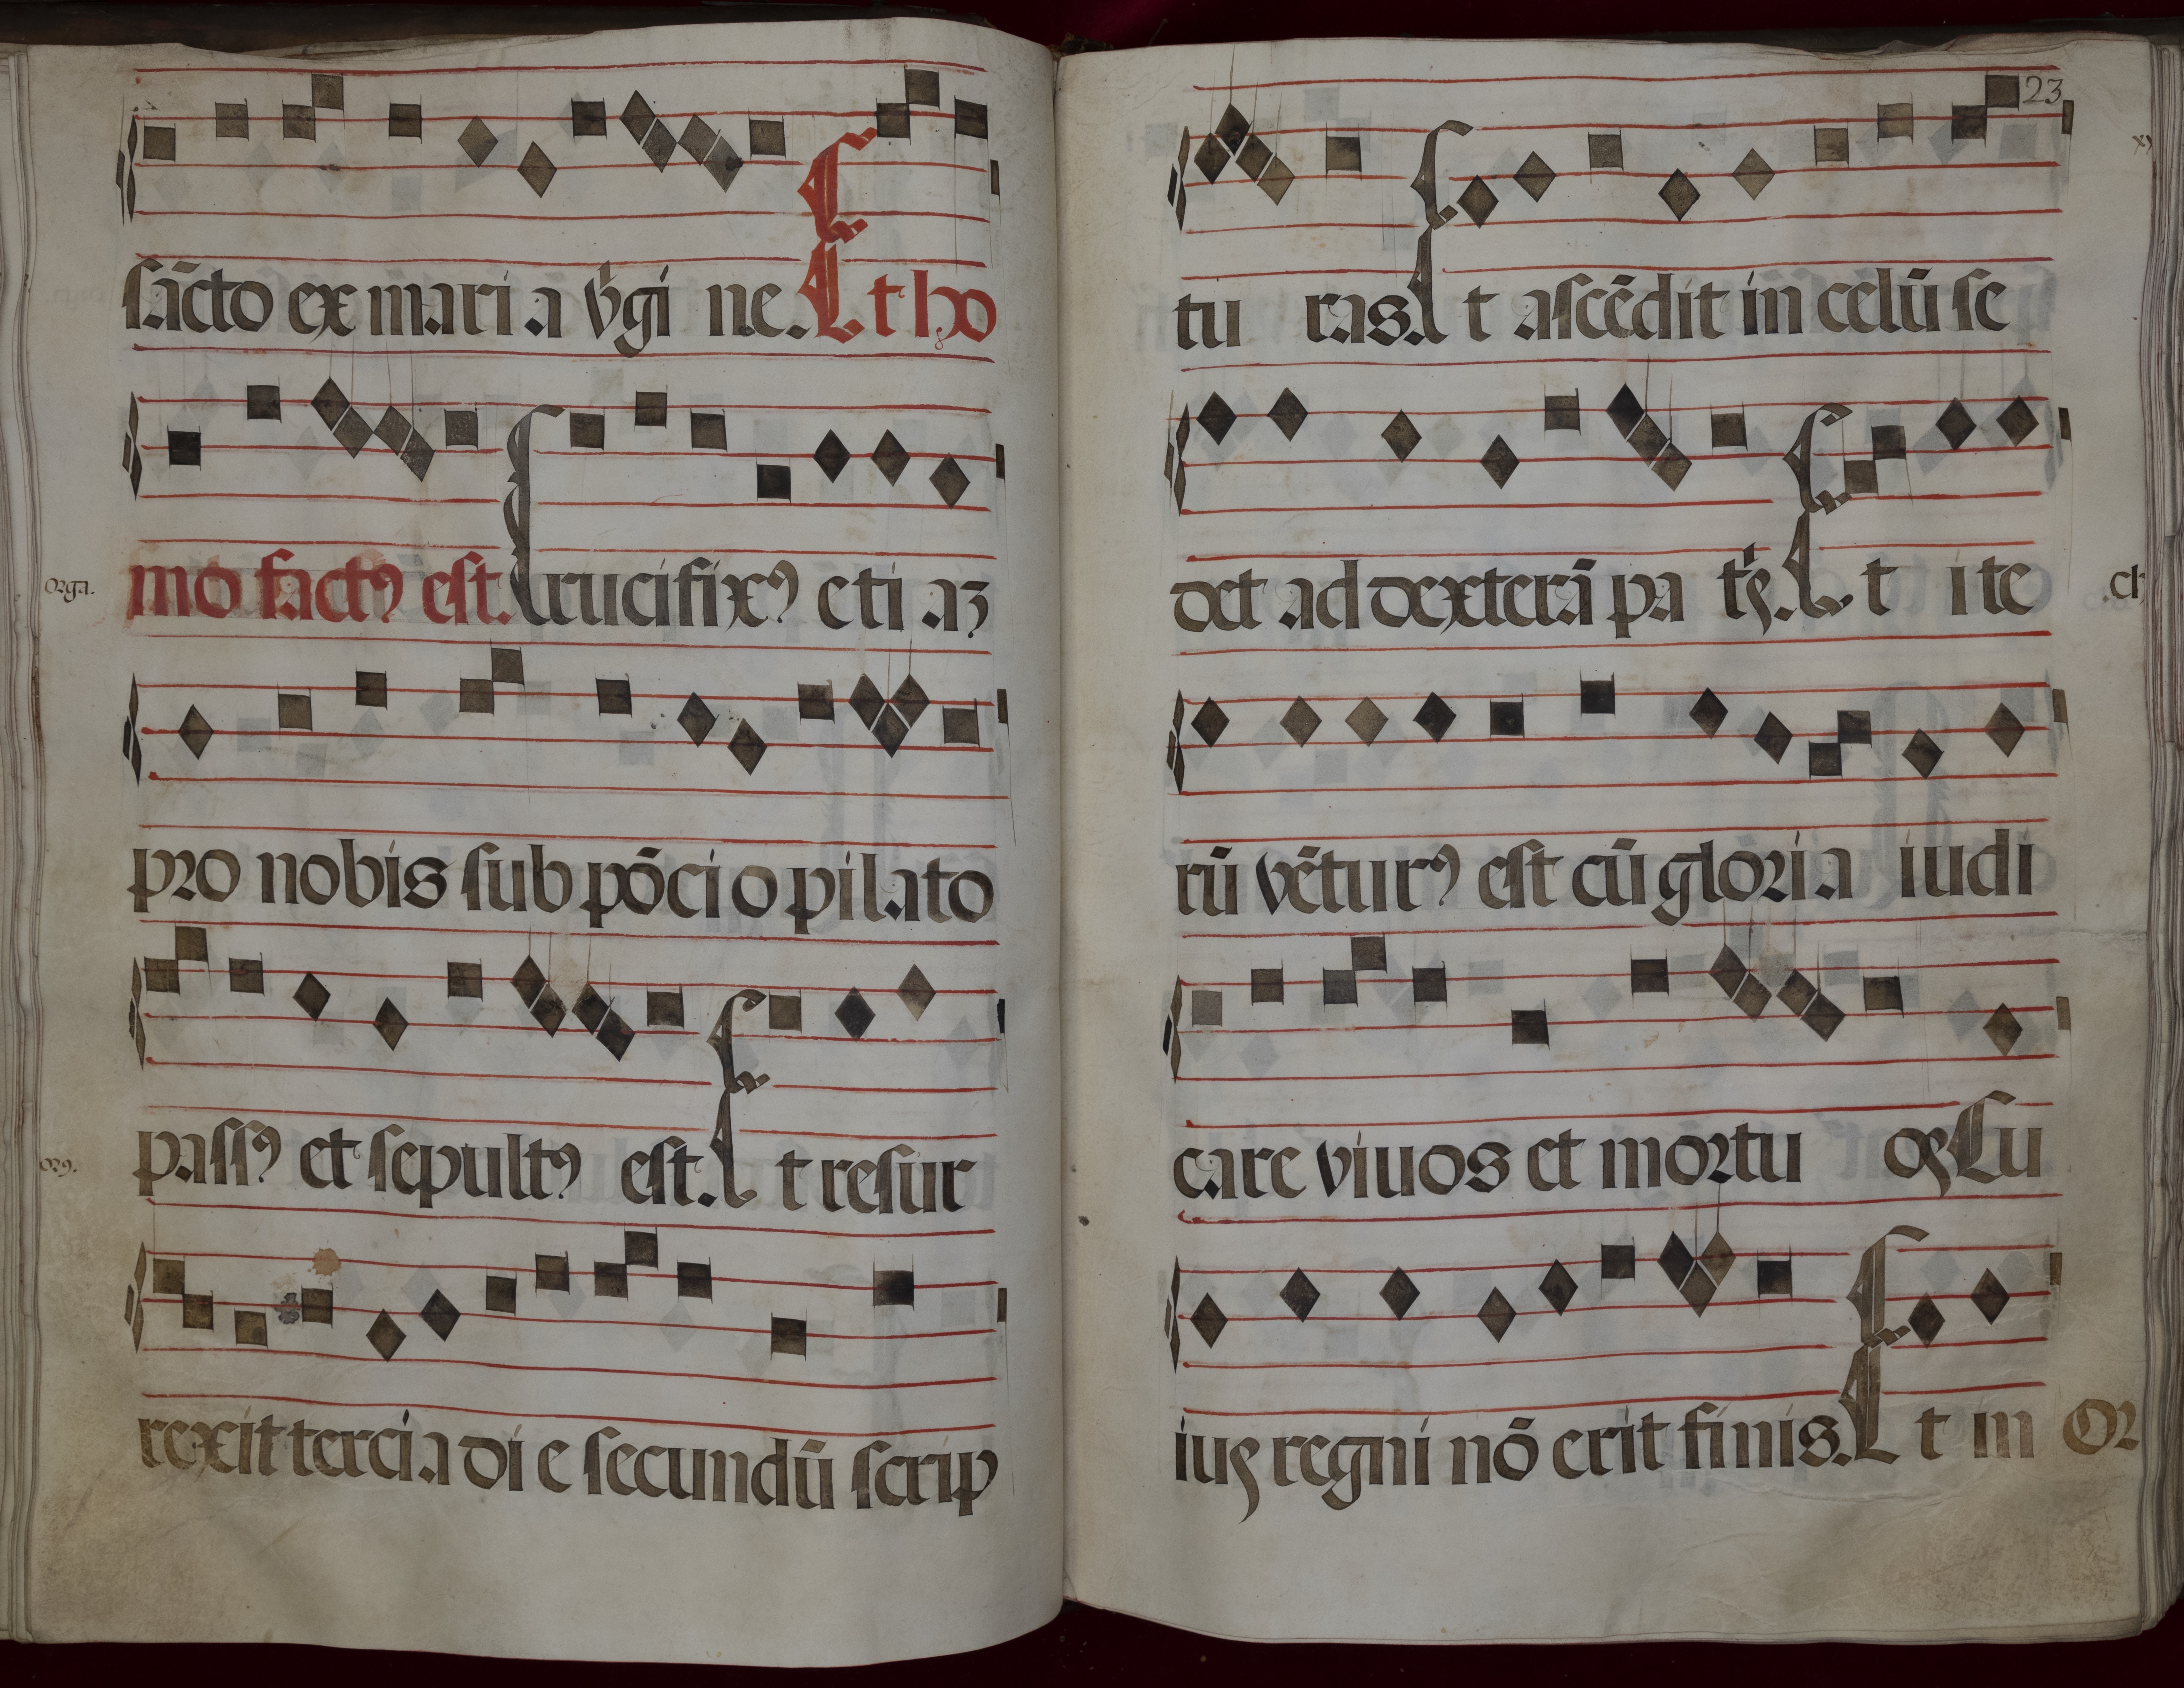 sācto ex mari a v̄gi ne. Et ho
orga. mo factꝯ est. Crucifixꝯ eti aʒ
pro nobis sub pōci o pilato
org. passꝯ et sepultꝯ est. Et resur
rexit tercia di e secundū scrip
23
tu ras. Et ascēdit in celū se
det ad dexterā pa tꝭs. Et ite
rū vētur9 est cū gloria iudi
care viuos et mortu oꝝ Cu
ius regni nō erit finis. Et in